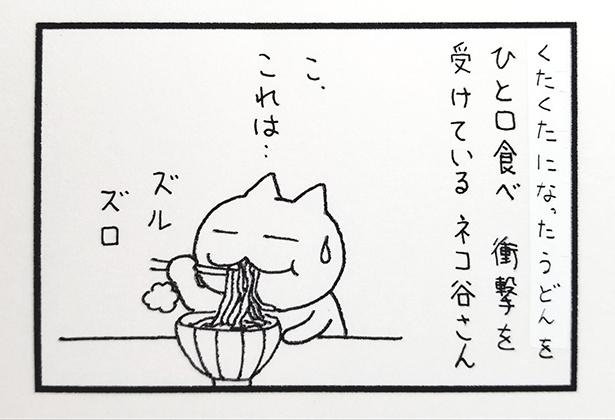 くたくたになったうどんを
ひと口食べ 衝撃を
受けている ネコ谷さん
こ、
これは…
ズル
ズロ